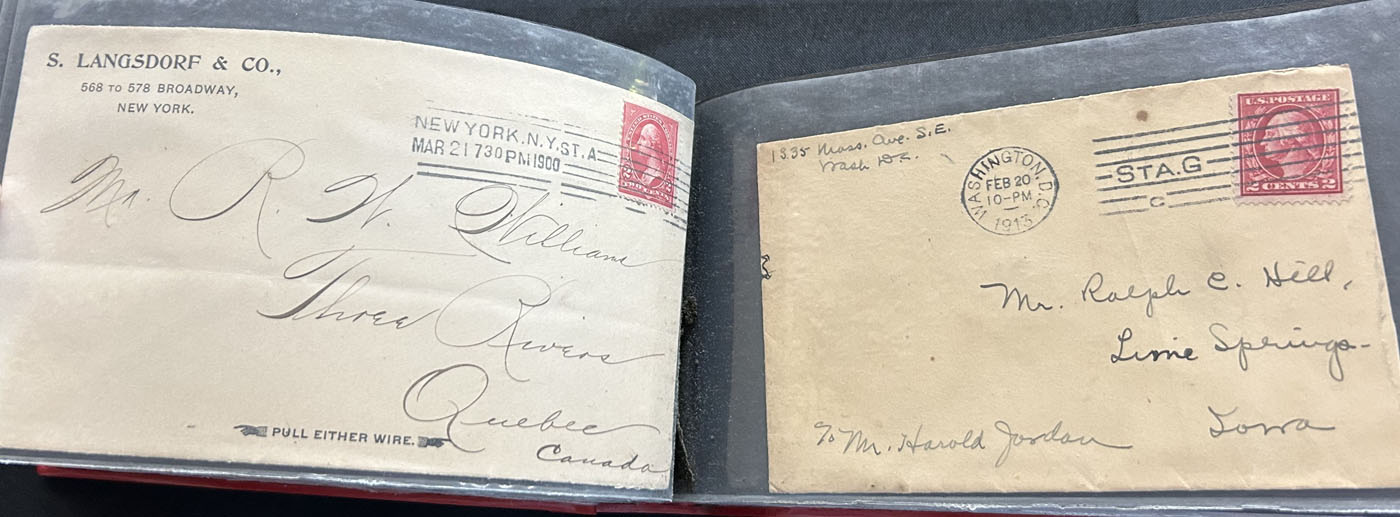 S. LANGSDORF & CO.,
568 TO 578 BROADWAY,
NEW YORK.
NEW YORK, N.Y. STA.
MAR 21 730PM 1900
2 2
TWO CENTS
Mr. R. W. Williams
Three Rivers
Quebec
Canada
PULL EITHER WIRE.
1335 Mass. Ave. S.E.
Wash D.C.
WASHINGTON, D.C.
FEB 20
10-PM
1913
STA.G
C
U.S. POSTAGE
2 CENTS 2
Mr. Ralph C. Hill,
Lime Springs-
Iowa
% Mr. Harold Jordan